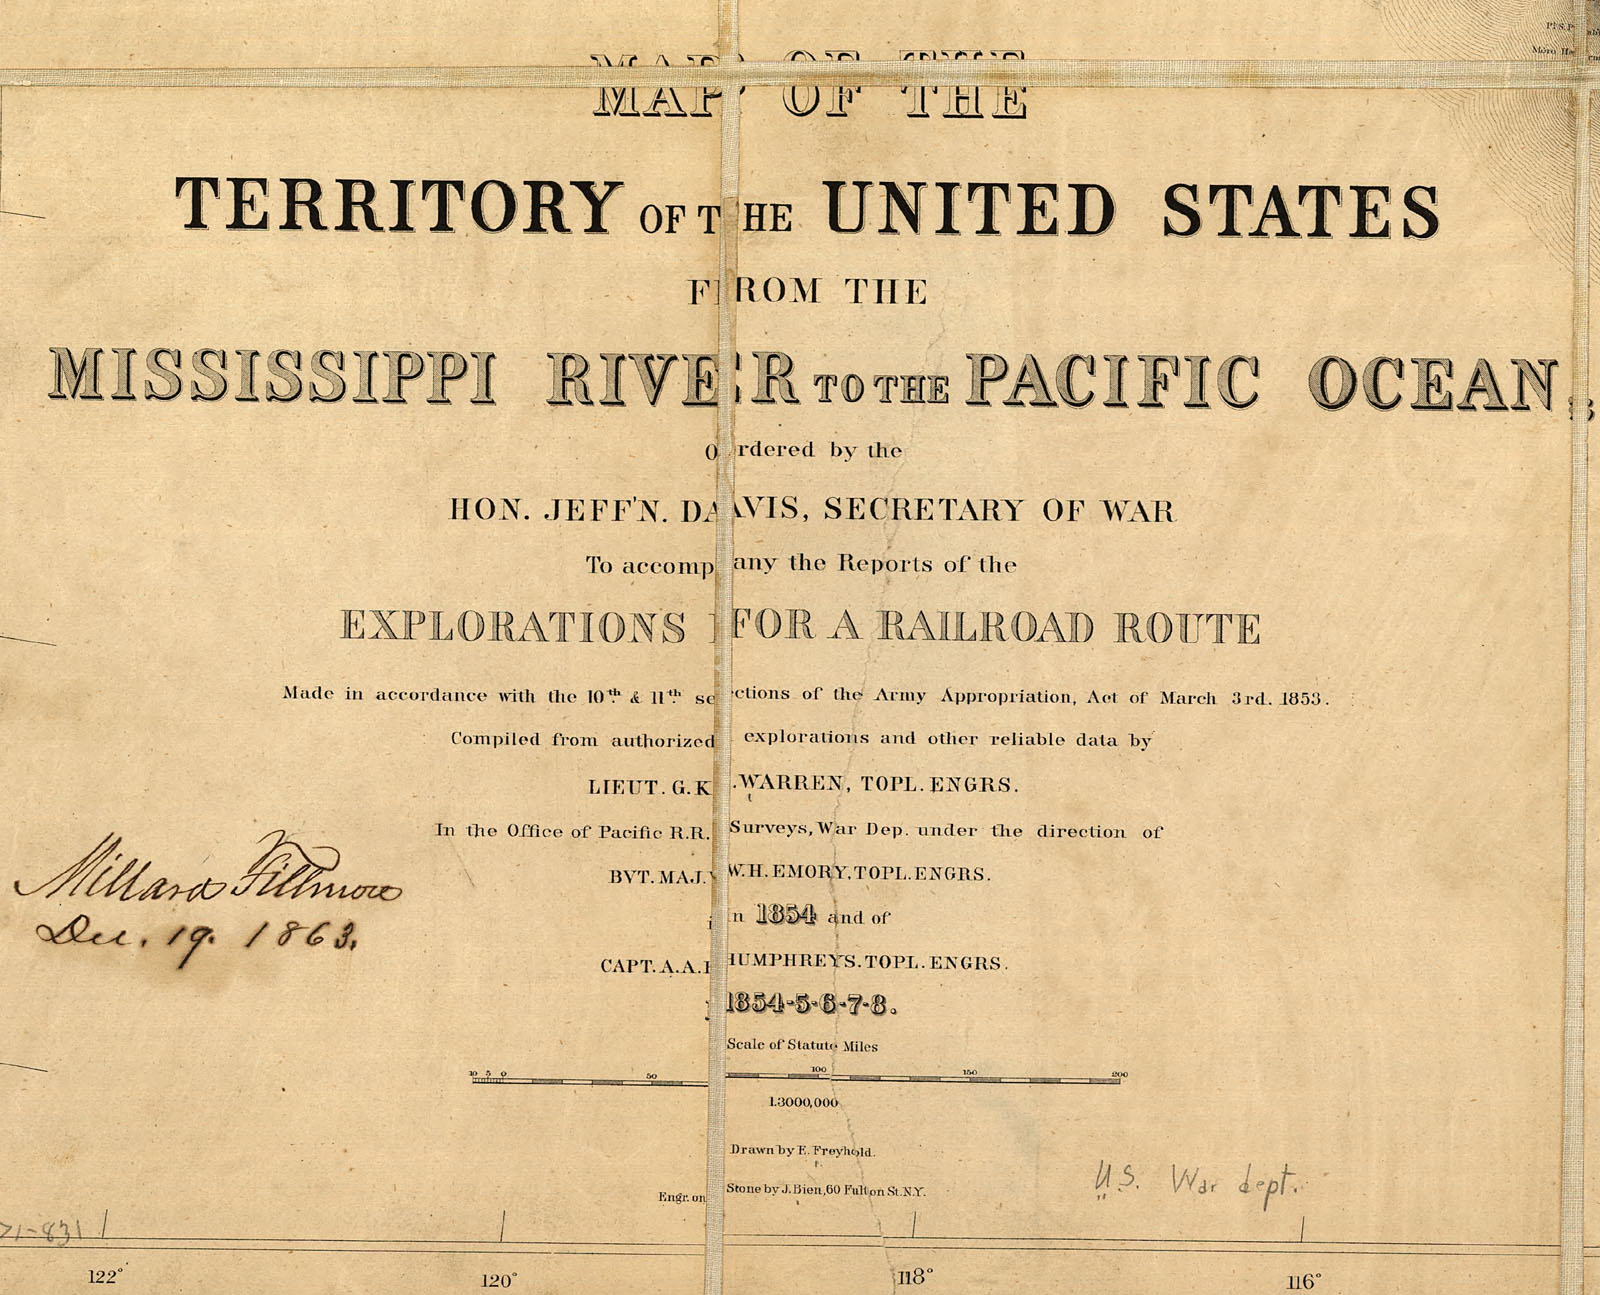 MAP OF THE
TERRITORY OF THE UNITED STATES
FROM THE
MISSISSIPPI RIVER TO THE PACIFIC OCEAN;
Ordered by the
HON. JEFF'N. DAVIS, SECRETARY OF WAR
To accompany the Reports of the
EXPLORATIONS FOR A RAILROAD ROUTE
Made in accordance with the 10th. & 11th. sections of the Army Appropriation, Act of March 3rd. 1853.
Compiled from authorized explorations and other reliable data by
LIEUT. G. K. WARREN, TOPL. ENGRS.
In the Office of Pacific R.R. Surveys, War Dep. under the direction of
BVT. MAJ. W. H. EMORY, TOPL. ENGRS.
in 1854 and of
CAPT. A. A. HUMPHREYS. TOPL. ENGRS.
1854-5-6-7-8.
Millard Fillmore
Dec. 19. 1863.
Scale of Statute Miles
10 5 0 50 100 150 200
1.3000,000
Drawn by E. Freyhold.
Engr. on Stone by J. Bien, 60 Fulton St. N.Y.
U.S. War dept.
71-831
122° 120° 118° 116°